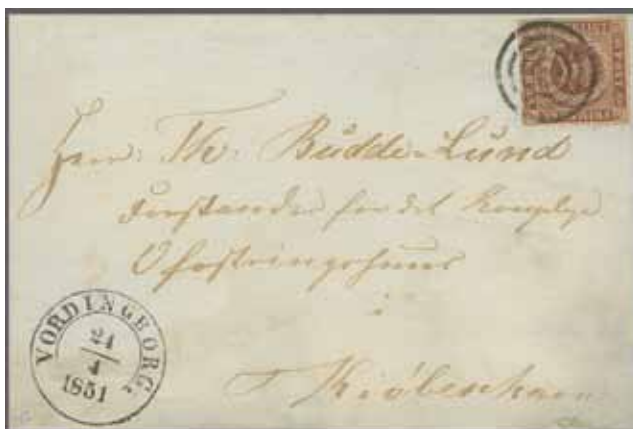 Herr Th: Büdde-Lünd
Forstander for det Kongelige
Opfostringshuus
i
Kiöbenhavn
VORDINGBORG.
21
4
1851